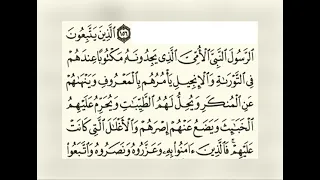 ١٥٦ الَّذِينَ يَتَّبِعُونَ
الرَّسُولَ النَّبِيَّ الْأُمِّيَّ الَّذِي يَجِدُونَهُ مَكْتُوبًا عِندَهُمْ
فِي التَّوْرَىٰةِ وَالْإِنجِيلِ يَأْمُرُهُم بِالْمَعْرُوفِ وَيَنْهَىٰهُمْ
عَنِ الْمُنكَرِ وَيُحِلُّ لَهُمُ الطَّيِّبَٰتِ وَيُحَرِّمُ عَلَيْهِمُ
الْخَبَٰئِثَ وَيَضَعُ عَنْهُمْ إِصْرَهُمْ وَالْأَغْلَٰلَ الَّتِي كَانَتْ
عَلَيْهِمْ فَالَّذِينَ ءَامَنُوا بِهِ وَعَزَّرُوهُ وَنَصَرُوهُ وَاتَّبَعُوا